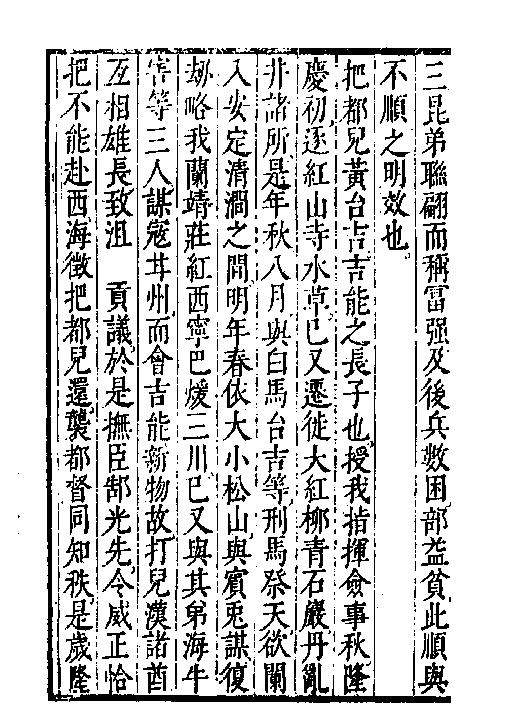 三昆弟聯翩而稱富强及後兵數困部益貧此順與
不順之明效也
把都兒黃台吉吉能之長子也授我指揮僉事秋隆
慶初逐紅山寺水草已又遷徙大紅柳青石嚴丹亂
井諸所是年秋八月與白馬台吉等刑馬祭天欲闌
入安定清澗之間明年春依大小松山與賓兎謀復
刼略我蘭靖莊紅西寧巴煖三川已又與其弟海牛
害等三人謀寇甘州而會吉能新物故打兒漢諸酋
互相雄長致沮　貢議於是撫臣郜光先令威正恰
把不能赴西海徵把都兒還襲都督同知秩是歲隆